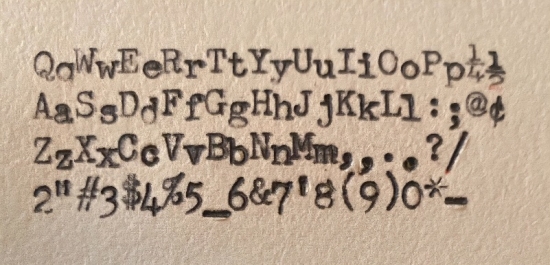 QqWwEeRrTtYyUuIiOoPp¼½
AaSsDdFfGgHhJjKkLl:;@¢
ZzXxCcVvBbNnMm,,..?/
2"#3$4%5_6&7'8(9)0*-